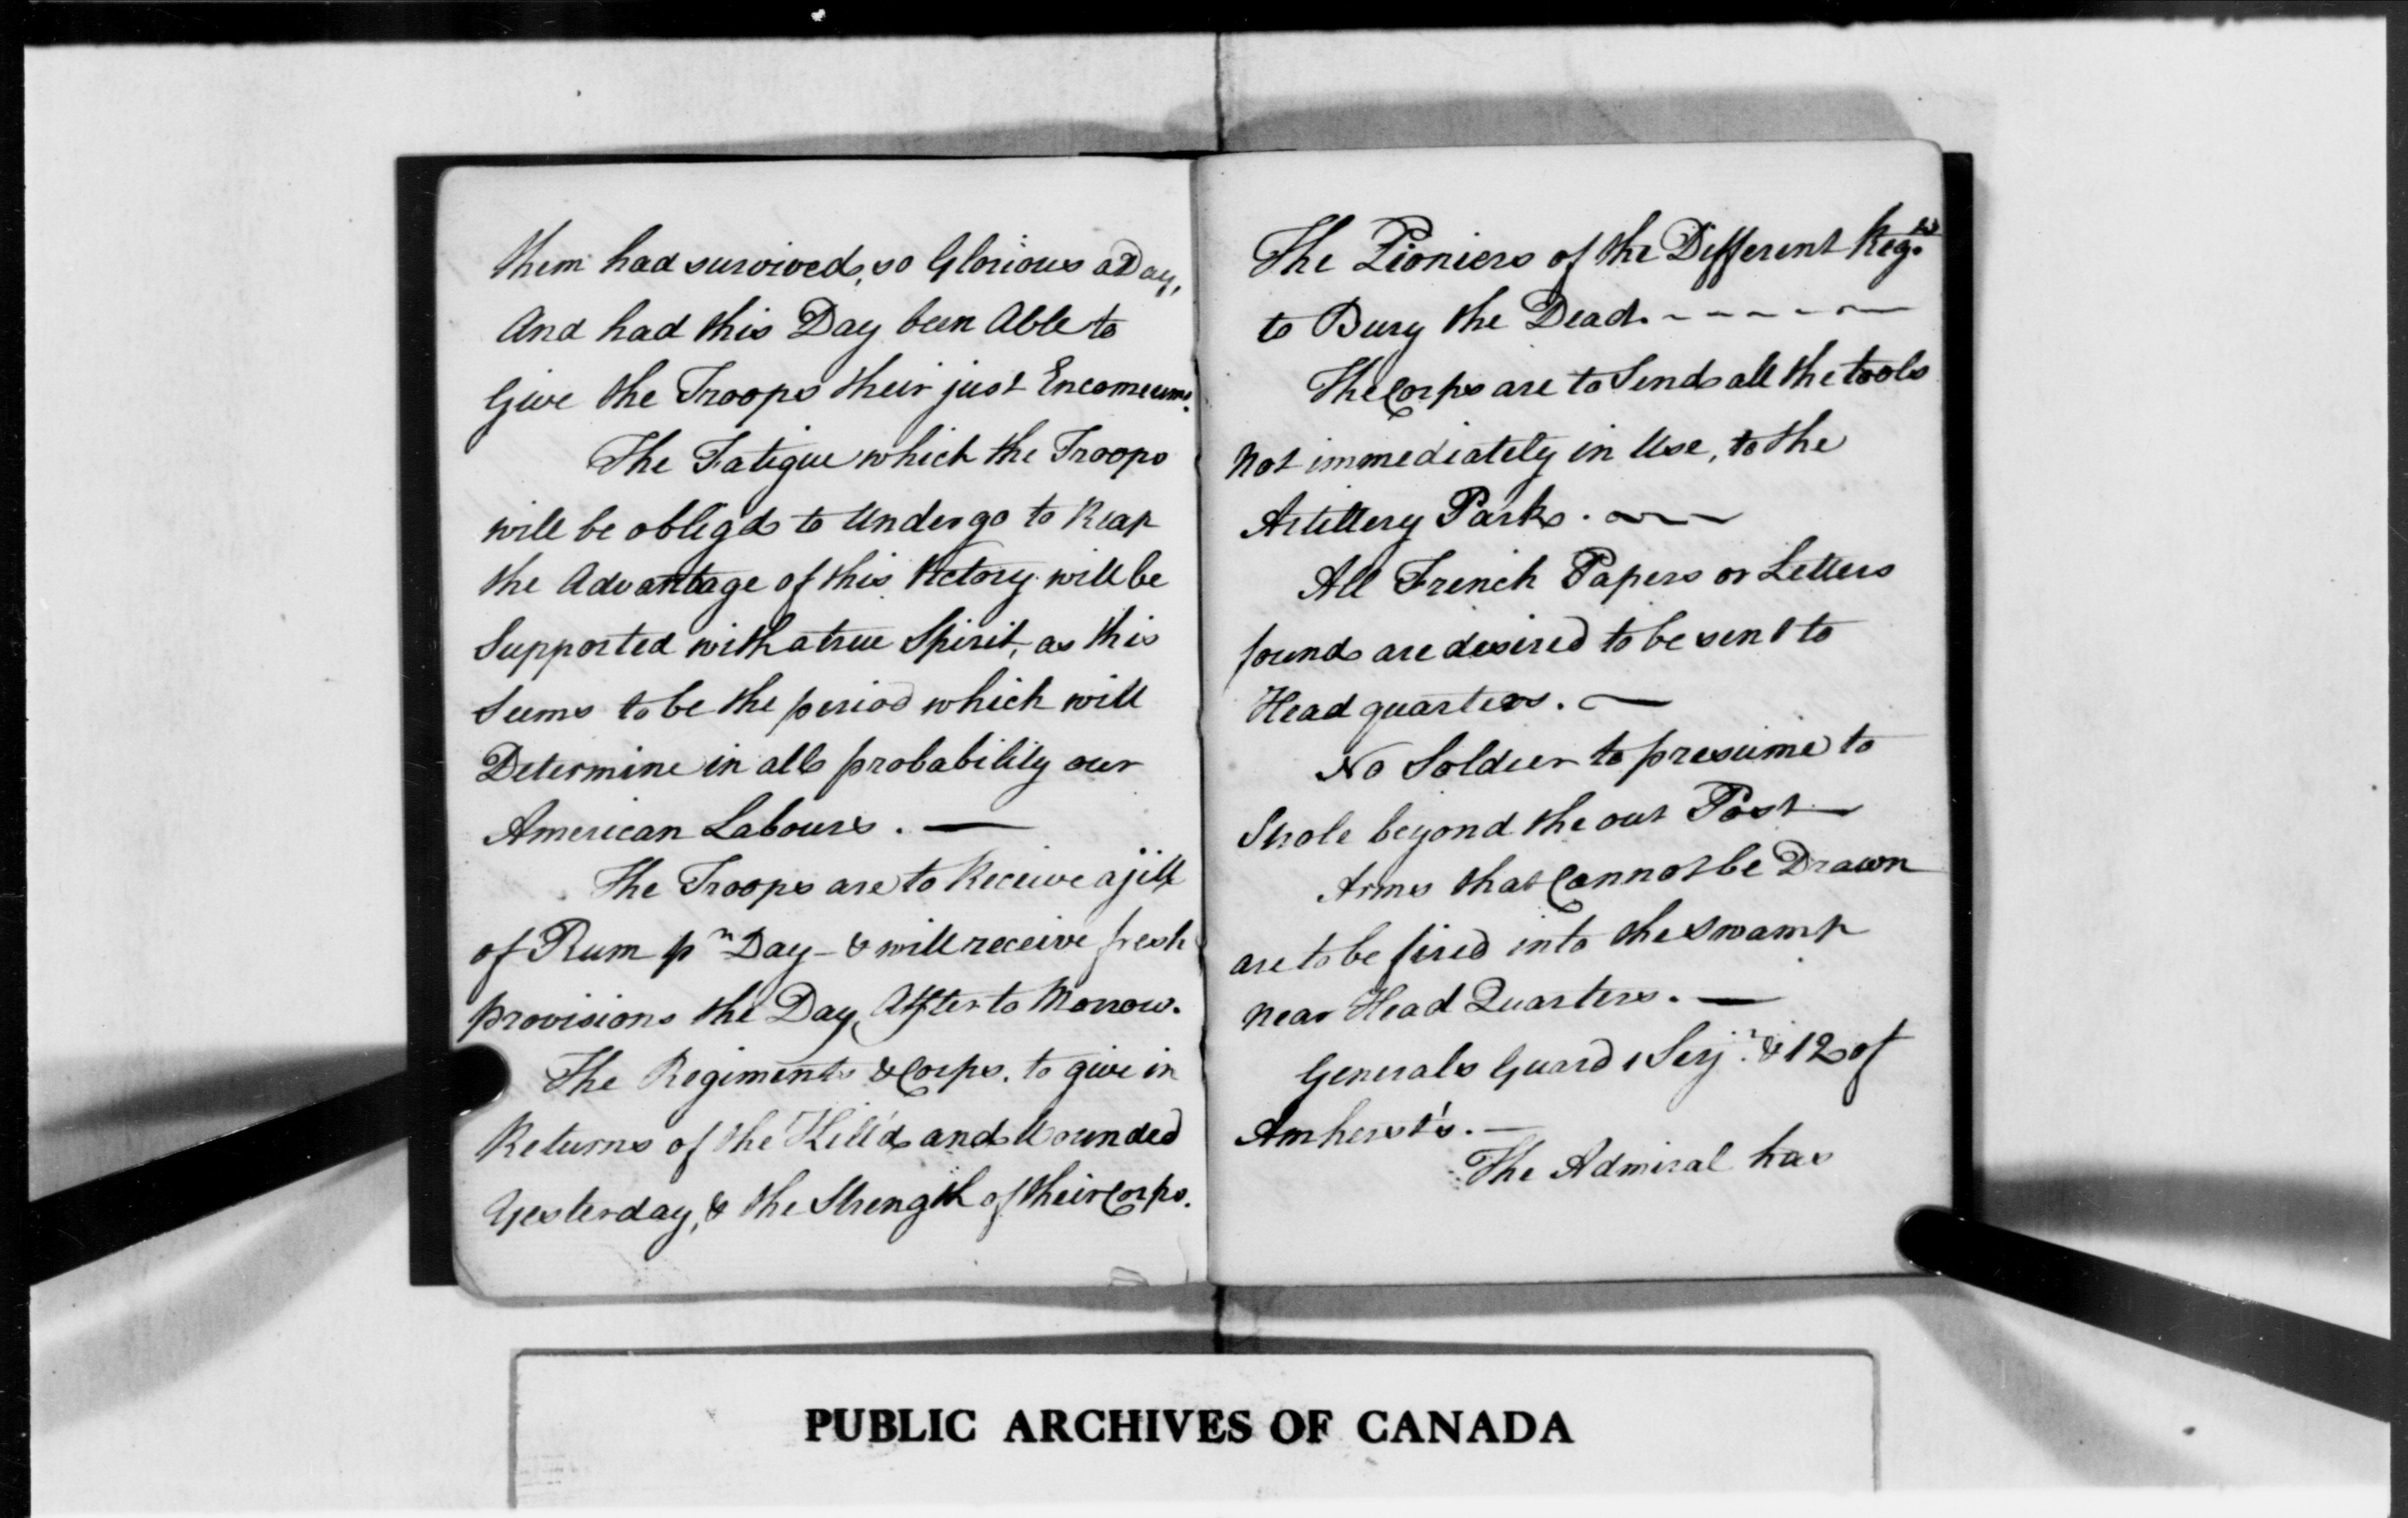 them had survived, so Glorious a Day,
And had this Day been Able to
Give the Troops their just Encomeums.
The Fatigue which the Troops
will be obligd to Undergo to Reap
the Advantage of this Victory will be
Supported with a true Spirit, as this
Seems to be the period which will
Determine in all probability our
American Labours. —
The Troops are to Receive a jill
of Rum pr Day - & will receive fresh
provisions the Day After to Morrow.
The Regiments & Corps. to give in
Returns of the Kill'd and Wounded
Yesterday, & the Strength of their Corps.
The Pioniers of the Different Regts
to Bury the Dead. - - - - -
The Corps are to Send all the tools
Not immediately in Use, to the
Artillery Park. —
All French Papers or Letters
found are desired to be sent to
Head quarters. —
No Soldier to presume to
Strole beyond the out Post —
Arms that Cannot be Drawn
are to be fired into the Swamp
near Head Quarters. —
Generals Guard 1 Serjt & 12 of
Amherst's. —
The Admiral has
PUBLIC ARCHIVES OF CANADA